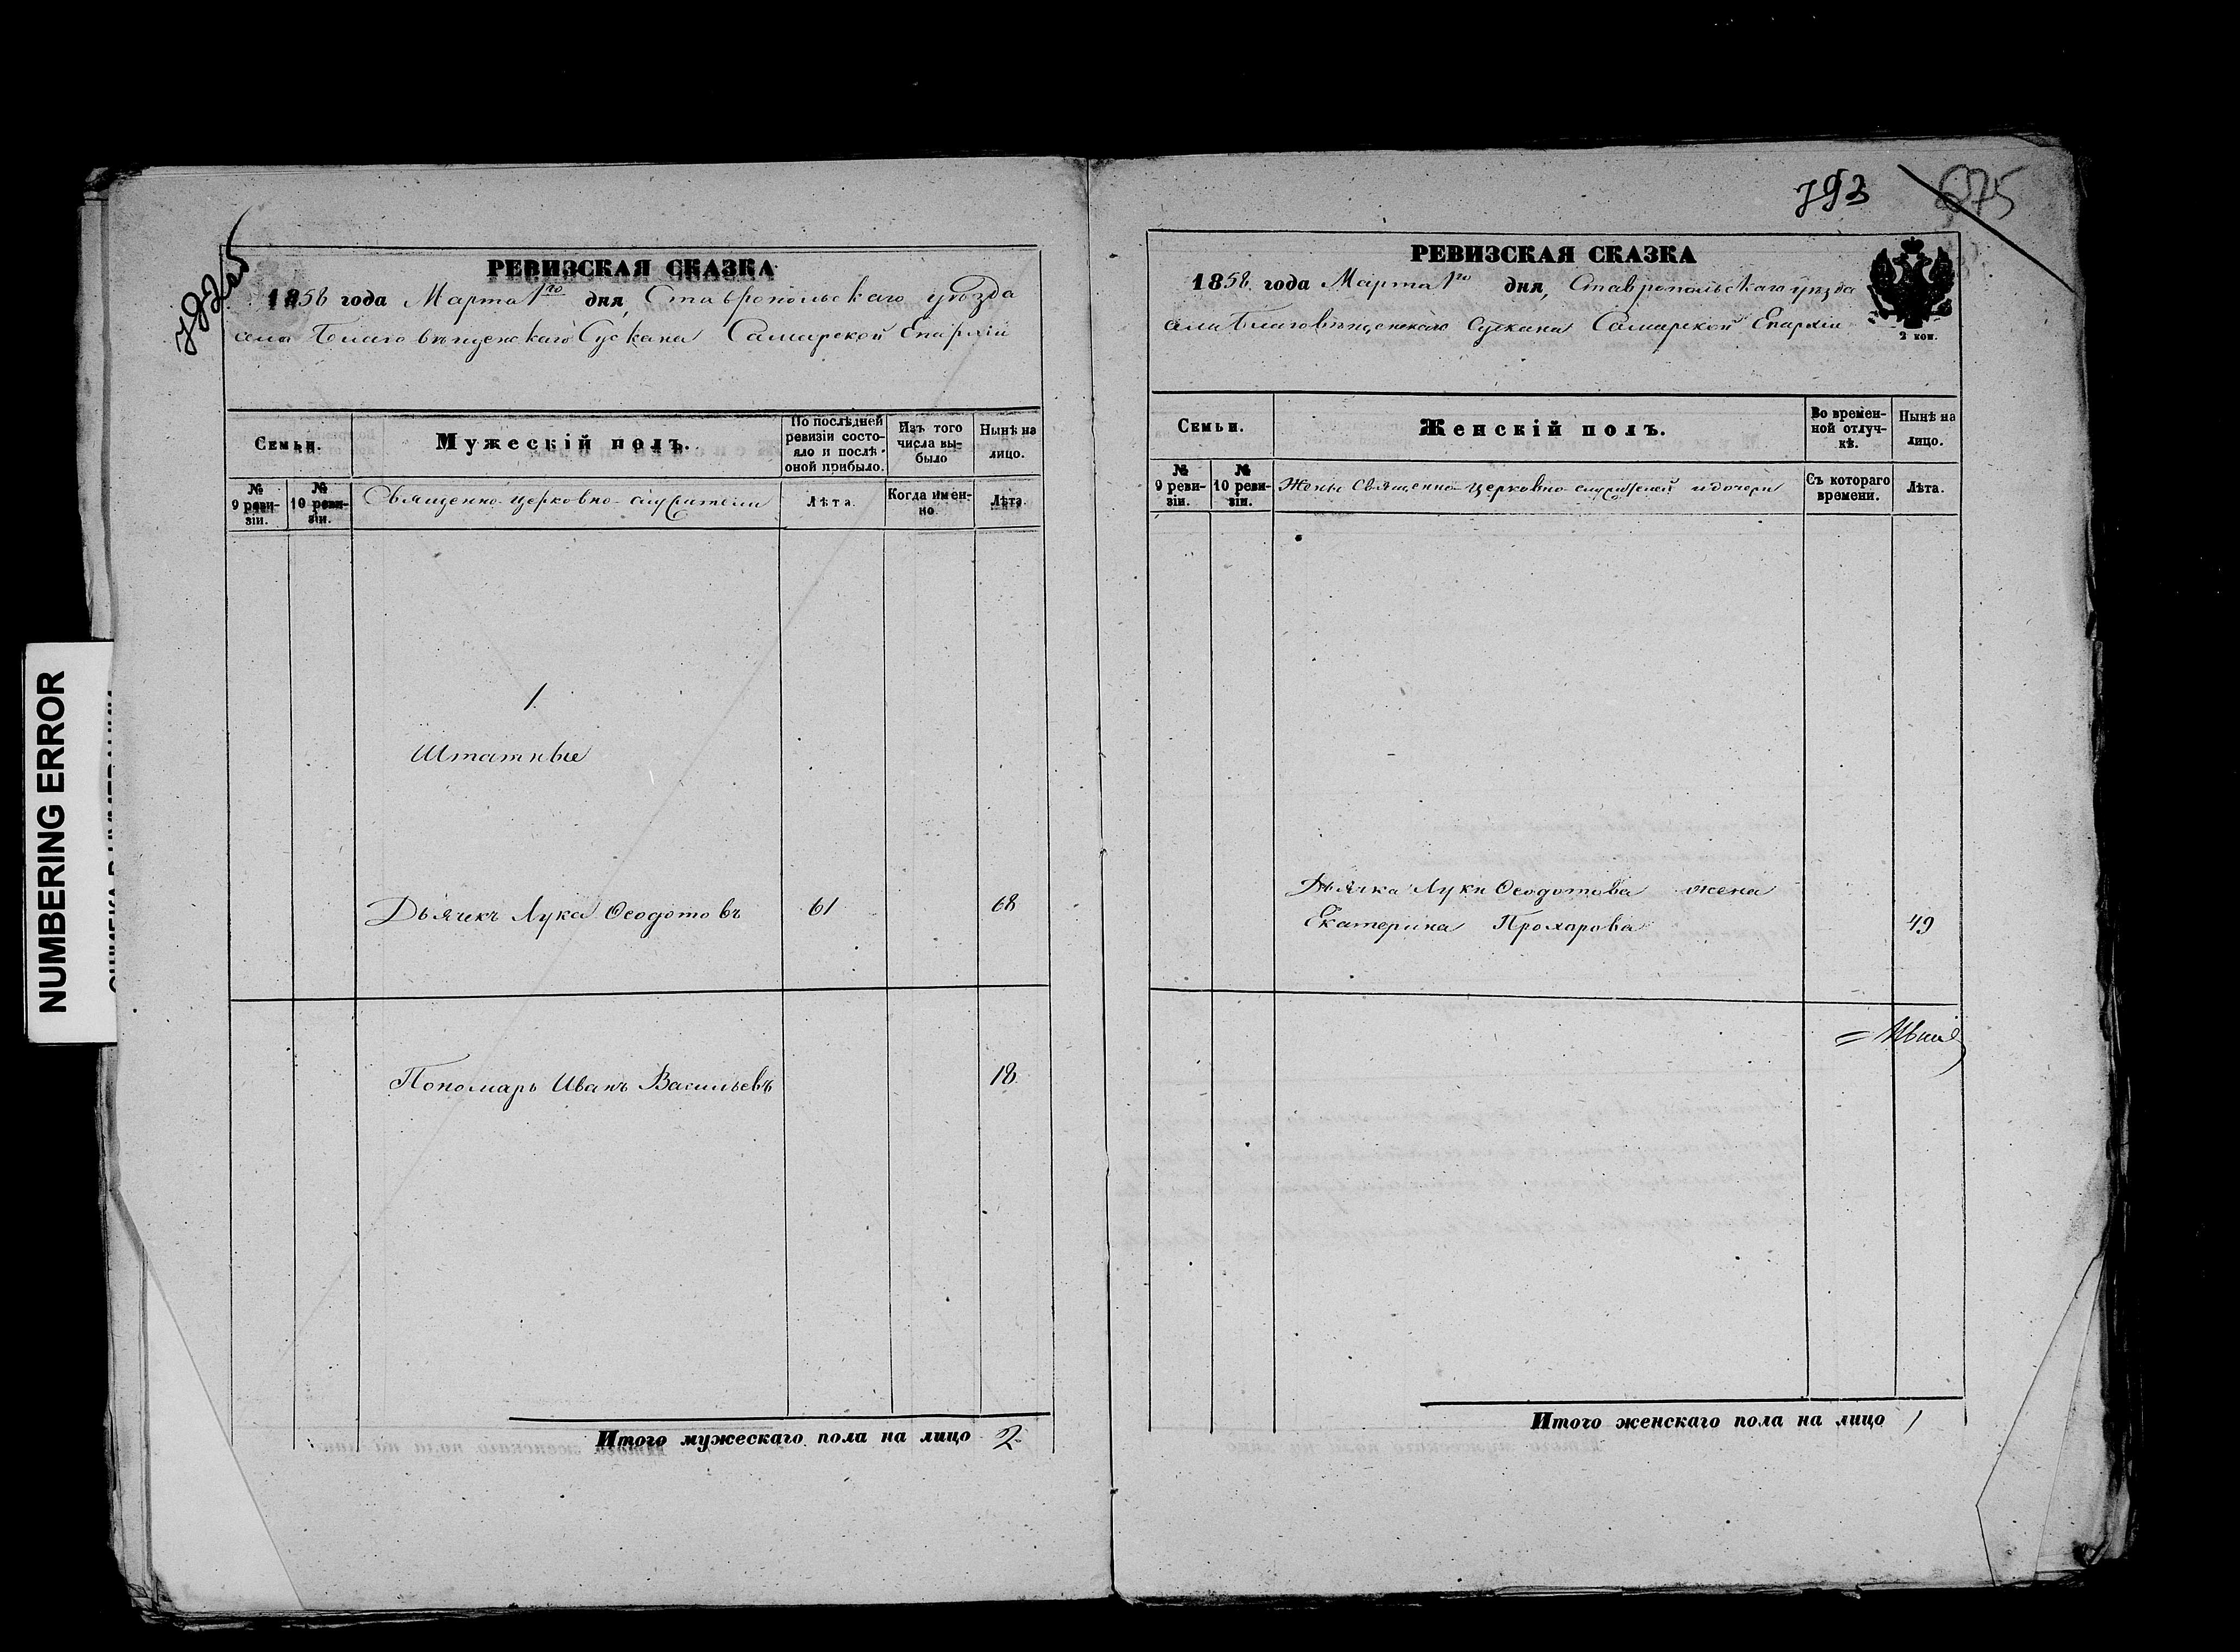 РЕВИЗСКАЯ СКАЗКА
1858 года Марта 1го дня, Ставропольскаго уѣзда
села Благовѣщенскаго Сускана Самарской Епархіи
Семьи.
Мужескій полъ.
По послѣдней ревизіи состояло и послѣ оной прибыло.
Изъ того числа выбыло
Нынѣ на лицо.
№ 9 ревизіи.
№ 10 ревизіи.
Священно-церковно-служители
Лѣта.
Когда именно
Лѣта.
1.
Штатные
Дьячекъ Лука Ѳеодотовъ 61 68
Пономарь Иванъ Васильевъ 18
Итого мужескаго пола на лицо 2
793
675
РЕВИЗСКАЯ СКАЗКА
1858 года Марта 1го дня, Ставропольскаго уѣзда
села Благовѣщенскаго Сускана Самарской Епархіи
2 коп.
Семьи.
Женскій полъ.
Во временной отлучкѣ.
Нынѣ на лицо.
№ 9 ревизіи.
№ 10 ревизіи.
Жены Священно-церковно-служителей и дочери
Съ котораго времени.
Лѣта.
Дьячка Луки Ѳеодотова жена
Екатерина Прохорова 49
Итого женскаго пола на лицо 1
NUMBERING ERROR